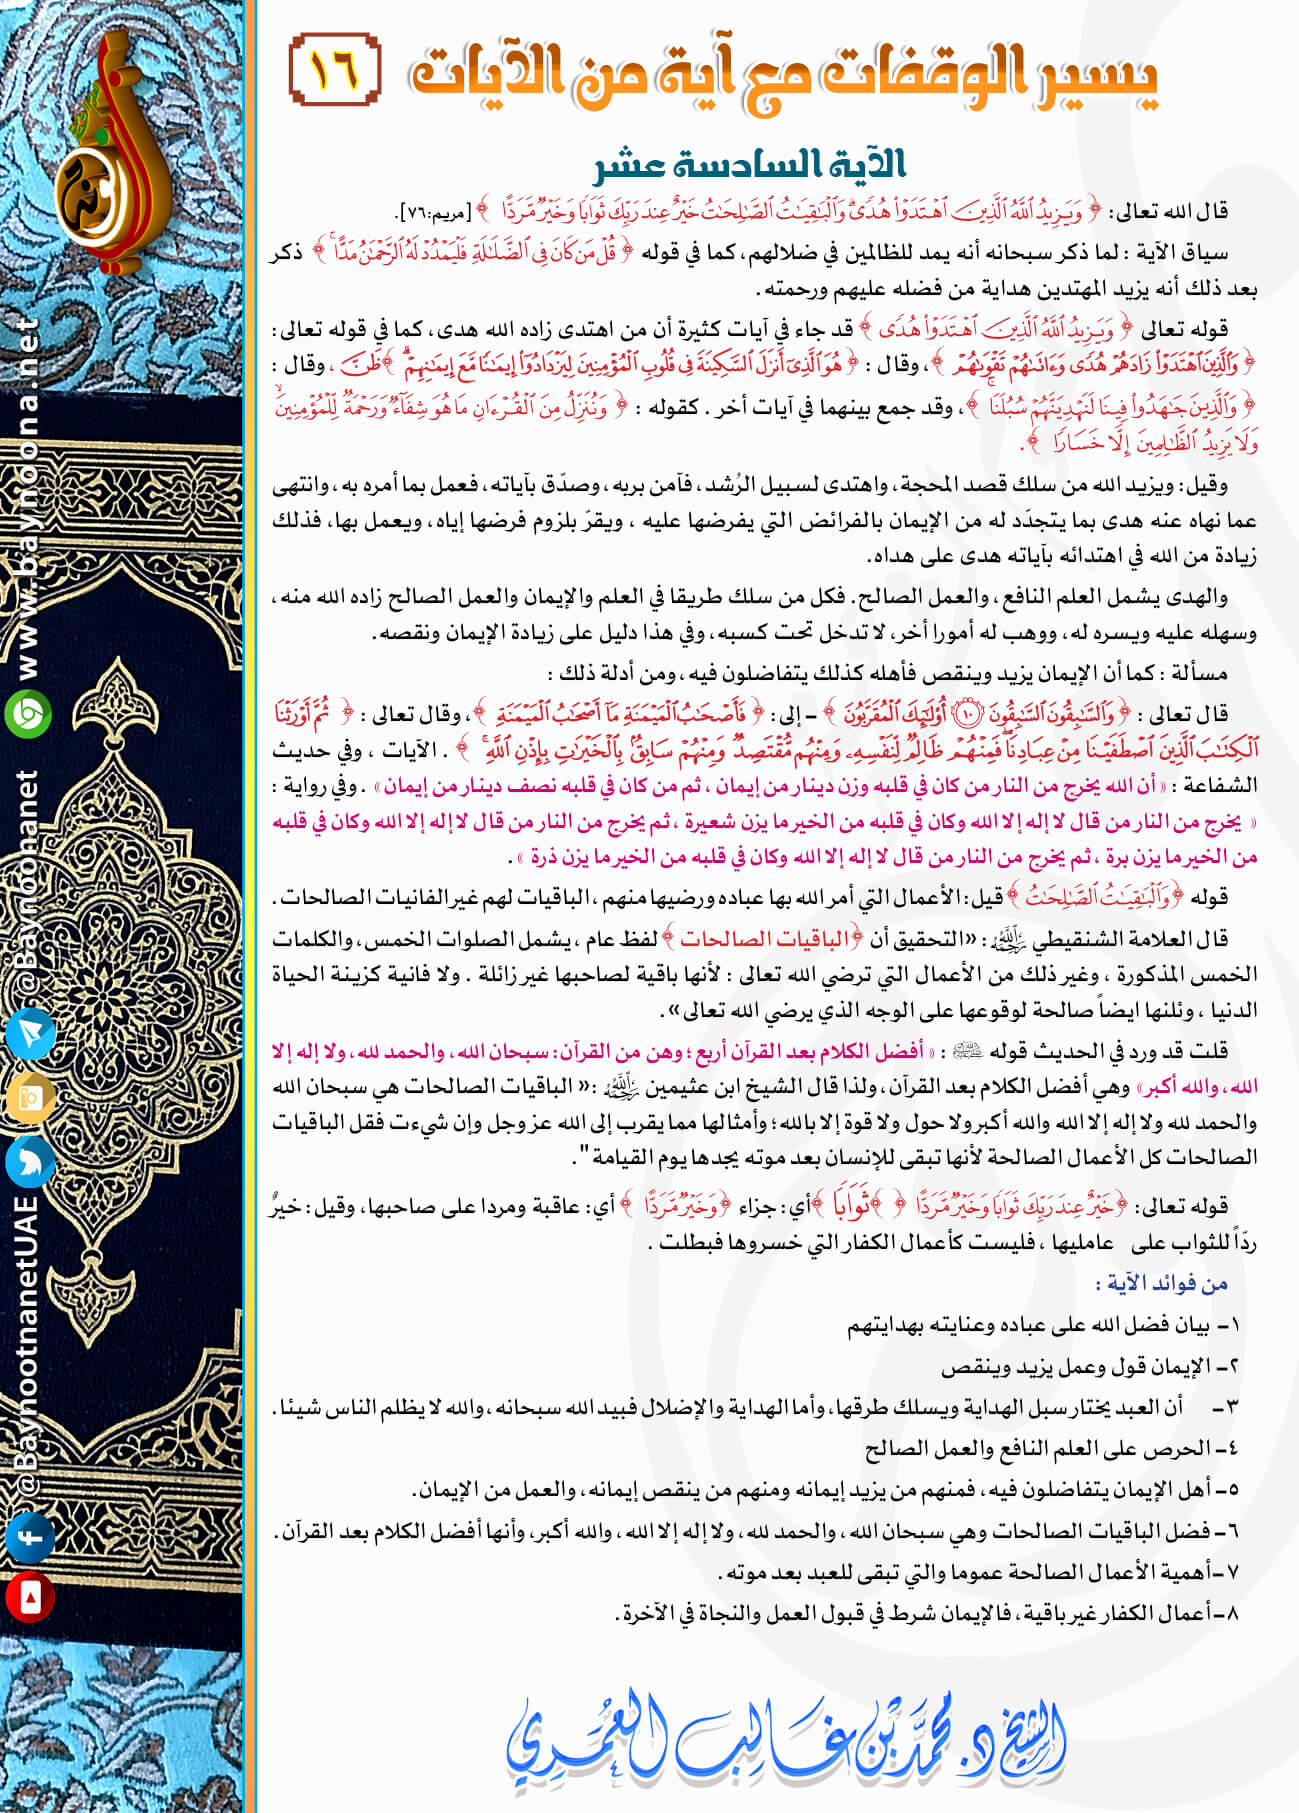 يسير الوقفات مع آية من الآيات
١٦
الآية السادسة عشر
قال الله تعالى: ﴿ وَيَزِيدُ اللَّهُ الَّذِينَ اهْتَدَوْا هُدًى وَالْبَاقِيَاتُ الصَّالِحَاتُ خَيْرٌ عِندَ رَبِّكَ ثَوَابًا وَخَيْرٌ مَّرَدًّا ﴾ [مريم:٧٦].
سياق الآية : لما ذكر سبحانه أنه يمد للظالمين في ضلالهم، كما في قوله ﴿ قُلْ مَن كَانَ فِي الضَّلَالَةِ فَلْيَمْدُدْ لَهُ الرَّحْمَنُ مَدًّا ﴾ ذكر
بعد ذلك أنه يزيد المهتدين هداية من فضله عليهم ورحمته.
قوله تعالى ﴿ وَيَزِيدُ اللَّهُ الَّذِينَ اهْتَدَوْا هُدًى ﴾ قد جاء في آيات كثيرة أن من اهتدى زاده الله هدى، كما في قوله تعالى:
﴿ وَالَّذِينَ اهْتَدَوْا زَادَهُمْ هُدًى وَءَاتَاهُمْ تَقْوَاهُمْ ﴾، وقال : ﴿ هُوَ الَّذِي أَنزَلَ السَّكِينَةَ فِي قُلُوبِ الْمُؤْمِنِينَ لِيَزْدَادُوا إِيمَانًا مَّعَ إِيمَانِهِمْ ﴾ ، وقال :
﴿ وَالَّذِينَ جَاهَدُوا فِينَا لَنَهْدِيَنَّهُمْ سُبُلَنَا ﴾، وقد جمع بينهما في آيات أخر . كقوله : ﴿ وَنُنَزِّلُ مِنَ الْقُرْءَانِ مَا هُوَ شِفَاءٌ وَرَحْمَةٌ لِّلْمُؤْمِنِينَ
وَلَا يَزِيدُ الظَّالِمِينَ إِلَّا خَسَارًا ﴾.
وقيل: ويزيد الله من سلك قصد المحجة، واهتدى لسبيل الرُشد، فآمن بربه، وصدّق بآياته، فعمل بما أمره به، وانتهى
عما نهاه عنه هدى بما يتجدّد له من الإيمان بالفرائض التي يفرضها عليه ، ويقرّ بلزوم فرضها إياه، ويعمل بها، فذلك
زيادة من الله في اهتدائه بآياته هدى على هداه.
والهدى يشمل العلم النافع، والعمل الصالح. فكل من سلك طريقا في العلم والإيمان والعمل الصالح زاده الله منه،
وسهله عليه ويسره له، ووهب له أمورا أخر، لا تدخل تحت كسبه، وفي هذا دليل على زيادة الإيمان ونقصه.
مسألة : كما أن الإيمان يزيد وينقص فأهله كذلك يتفاضلون فيه ، ومن أدلة ذلك :
قال تعالى : ﴿ وَالسَّابِقُونَ السَّابِقُونَ ١٠ أُوْلَئِكَ الْمُقَرَّبُونَ ﴾ - إلى: ﴿ فَأَصْحَابُ الْمَيْمَنَةِ مَا أَصْحَابُ الْمَيْمَنَةِ ﴾، وقال تعالى : ﴿ ثُمَّ أَوْرَثْنَا
الْكِتَابَ الَّذِينَ اصْطَفَيْنَا مِنْ عِبَادِنَا فَمِنْهُمْ ظَالِمٌ لِّنَفْسِهِ وَمِنْهُم مُّقْتَصِدٌ وَمِنْهُمْ سَابِقٌ بِالْخَيْرَاتِ بِإِذْنِ اللَّهِ ﴾ . الآيات ، وفي حديث
الشفاعة : « أن الله يخرج من النار من كان في قلبه وزن دينار من إيمان ، ثم من كان في قلبه نصف دينار من إيمان» . وفي رواية :
« يخرج من النار من قال لا إله إلا الله وكان في قلبه من الخير ما يزن شعيرة ، ثم يخرج من النار من قال لا إله إلا الله وكان في قلبه
من الخير ما يزن برة ، ثم يخرج من النار من قال لا إله إلا الله وكان في قلبه من الخير ما يزن ذرة » .
قوله ﴿وَالْبَاقِيَاتُ الصَّالِحَاتُ ﴾ قيل: الأعمال التي أمر الله بها عباده ورضيها منهم ، الباقيات لهم غير الفانيات الصالحات .
قال العلامة الشنقيطي رحمه الله : «التحقيق أن ﴿الباقيات الصالحات ﴾ لفظ عام ، يشمل الصلوات الخمس، والكلمات
الخمس المذكورة ، وغير ذلك من الأعمال التي ترضي الله تعالى : لأنها باقية لصاحبها غير زائلة . ولا فانية كزينة الحياة
الدنيا ، وئلنها ايضاً صالحة لوقوعها على الوجه الذي يرضي الله تعالى».
قلت قد ورد في الحديث قوله ﷺ : « أفضل الكلام بعد القرآن أربع ؛ وهن من القرآن: سبحان الله، والحمد لله، ولا إله إلا
الله، والله أكبر» وهي أفضل الكلام بعد القرآن، ولذا قال الشيخ ابن عثيمين رحمه الله :« الباقيات الصالحات هي سبحان الله
والحمد لله ولا إله إلا الله والله أكبر ولا حول ولا قوة إلا بالله؛ وأمثالها مما يقرب إلى الله عز وجل وإن شيءت فقل الباقيات
الصالحات كل الأعمال الصالحة لأنها تبقى للإنسان بعد موته يجدها يوم القيامة".
قوله تعالى: ﴿خَيْرٌ عِندَ رَبِّكَ ثَوَابًا وَخَيْرٌ مَّرَدًّا ﴾ ﴿ثَوَابًا ﴾أي: جزاء ﴿وَخَيْرٌ مَّرَدًّا ﴾ أي: عاقبة ومردا على صاحبها، وقيل: خيرٌ
ردّاً للثواب على عامليها ، فليست كأعمال الكفار التي خسروها فبطلت .
من فوائد الآية :
١- بيان فضل الله على عباده وعنايته بهدايتهم
٢- الإيمان قول وعمل يزيد وينقص
٣- أن العبد يختار سبل الهداية ويسلك طرقها، وأما الهداية والإضلال فبيد الله سبحانه ، والله لا يظلم الناس شيئا .
٤- الحرص على العلم النافع والعمل الصالح
٥- أهل الإيمان يتفاضلون فيه، فمنهم من يزيد إيمانه ومنهم من ينقص إيمانه، والعمل من الإيمان.
٦- فضل الباقيات الصالحات وهي سبحان الله ، والحمد لله ، ولا إله إلا الله، والله أكبر، وأنها أفضل الكلام بعد القرآن.
٧-أهمية الأعمال الصالحة عموما والتي تبقى للعبد بعد موته.
٨-أعمال الكفار غير باقية، فالإيمان شرط في قبول العمل والنجاة في الآخرة.
الشيخ د. محمد بن غالب العمري
www.baynoona.net
@Baynoonanet
@BaynootnanetUAE